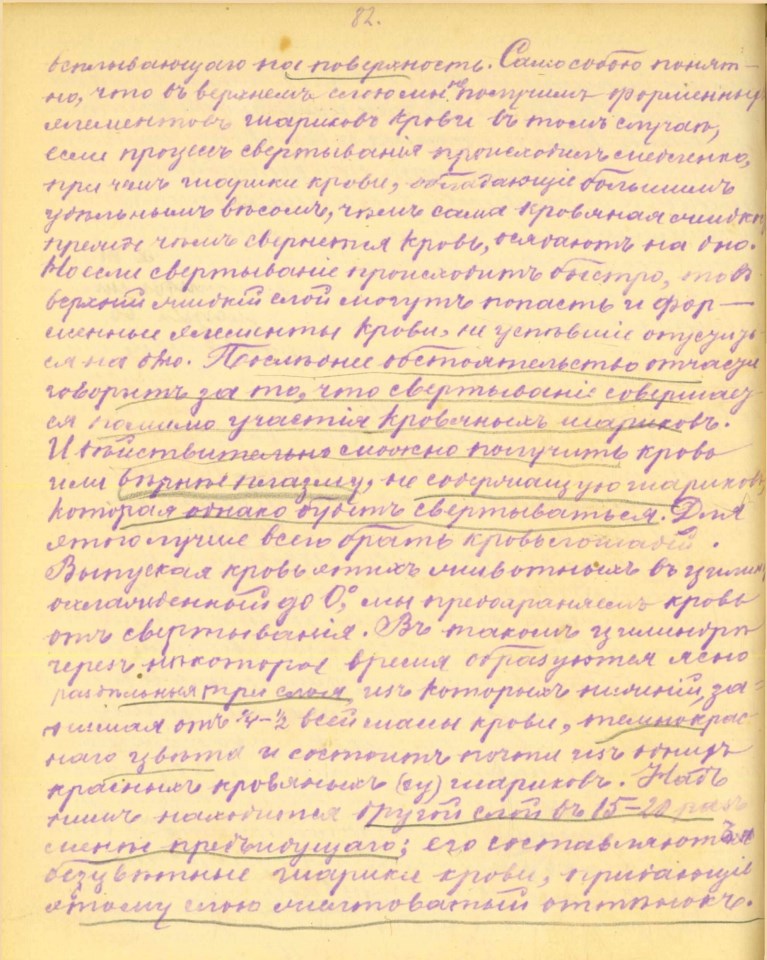 82.
всплывающаго на поверхность. Само собою понят-
но, что въ верхнемъ слою мы не получимъ форменных
элементовъ шариковъ крови въ томъ случаѣ,
если процесъ свертыванія происходилъ медленно,
при чемъ шарики крови, обладающіе большимъ
удѣльнымъ вѣсомъ, чѣмъ сама кровяная жидкос
прежде чѣмъ свернется кровь, осядаютъ на дно.
Но если свертываніе происходитъ быстро, то въ
верхній жидкій слой могутъ попасть и фор-
менные элементы крови, не успѣвшіе опустить-
ся на дно. Послѣднее обстоятельство отчасти
говоритъ за то, что свертываніе совершает-
ся помимо участія кровяныхъ шариковъ.
И дѣйствительно можно получить кровь
или вѣрнѣе плазму, не содержащую шариковъ,
которая однако будетъ свертываться. Для
этого лучше всего брать кровь лошадей.
Выпуская кровь этихъ животныхъ въ цилин
охлажденный до 0,° мы предохраняемъ кровь
отъ свертыванія. Въ такомъ цилиндрѣ
черезъ нѣкоторое время образуются ясно
раздѣльныя три слоя, изъ которыхъ нижній, за-
нимая отъ ¼-½ всей массы крови, темнокрас-
наго цвѣта и состоитъ почти изъ однихъ
красныхъ кровяныхъ шариковъ. Надъ
нимъ находится другой слой въ 15-20 разъ
менѣе предъидущаго; его составляютъ
безцвѣтные шарики крови, придающіе
этому слою желтоватый оттѣнокъ.